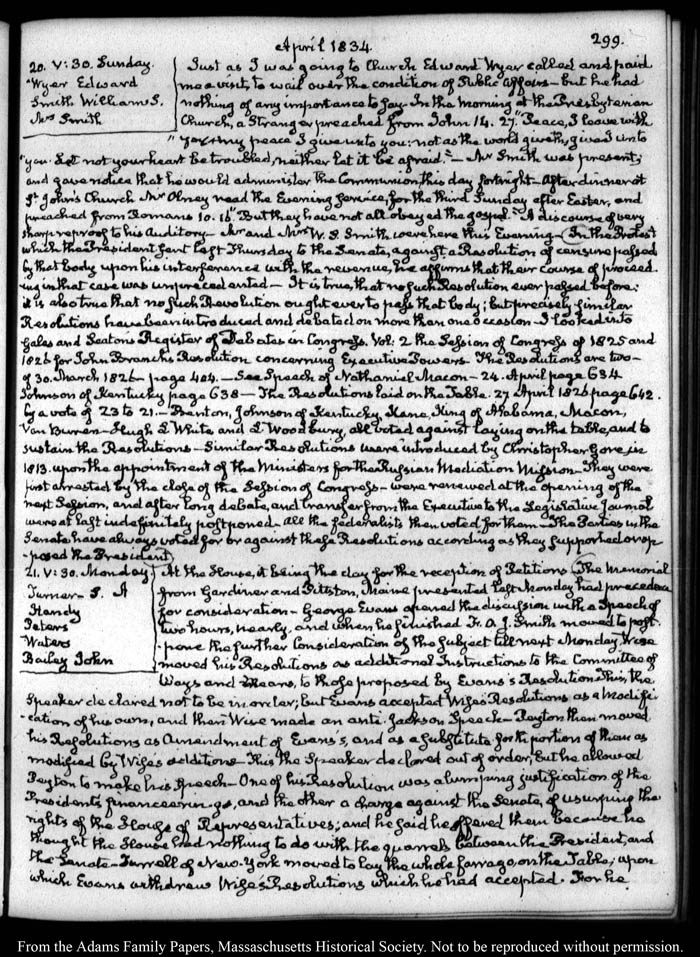 April 1834
299.
20. V:30. Sunday.
Wyer Edward
Smith William S.
Mrs Smith
Just as I was going to Church Edward Wyer called and paid
me a visit, to wail over the condition of Public Affairs – but he had
nothing of any importance to say – In the morning at the Presbyterian
Church, a Stranger preached from John 14. 27. "Peace, I leave with
"you, my peace I give unto you: not as the world giveth, give I unto
"you. Let not your heart be troubled, neither let it be afraid." – Mr Smith was present;
and gave notice that he would administer the Communion, this day fortnight – After dinner at
St. John's Church Mr Olney read the Evening Service, for the third Sunday after Easter, and
preached from Romans 10. 16 "But they have not all obeyed the gospel." A discourse of very
sharp reproof to his Auditory – Mr and Mrs W. S. Smith were here this Evening – In the Protest
which the President sent last Thursday to the Senate, against a Resolution of censure passed
by that body upon his interference with the revenue, he affirms that their course of proceed-
ing in that case was unprecedented – It is true, that no such Resolution ever passed before:
it is also true that no such Resolution ought ever to pass that body; but precisely similar
Resolutions have been introduced and debated on more than one occasion – I looked into
Gales and Seaton's Register of Debates in Congress. Vol: 2 the Session of Congress of 1825 and
1826 for John Branch's Resolution concerning Executive Powers – The Resolutions are two –
of 30. March 1826 – page 404. – See Speech of Nathaniel Macon – 24. April page 634
Johnson of Kentucky page 638 – The Resolutions laid on the Table. 27 April 1826 page 642.
by a vote of 23 to 21. – Benton, Johnson of Kentucky, Kane, King of Alabama, Macon,
Van Buren – Hugh L. White and L. Woodbury, all voted against laying on the table, and to
sustain the Resolutions – Similar Resolutions were introduced by Christopher Gore in
1813. upon the appointment of the Ministers for the Russian Mediation Mission – They were
first arrested by the close of the Session of Congress – were renewed at the opening of the
next Session, and after long debate, and transfer from the Executive to the Legislative Journal
were at last indefinitely postponed – all the federalists then voted for them – The Parties in the
Senate have always voted for or against these Resolutions according as they supported or op-
-posed the President.
21. V:30. Monday
Turner – S. A
Handy
Peters
Waters
Bailey John
At the House, it being the day for the reception of Petitions The Memorial
from Gardiner and Pittston, Maine presented last Monday had precedence
for consideration – George Evans opened the discussion with a Speech of
two hours, nearly, and when he finished F. O. J. Smith moved to post-
-pone the further Consideration of the subject till next Monday. Wise
moved his Resolutions as additional Instructions to the Committee of
Ways and Means, to those proposed by Evans's Resolution. This, the
Speaker declared not to be in order, but Evans accepted Wise's Resolutions as a Modifi-
-cation of his own, and then Wise made an anti-Jackson Speech – Peyton then moved
his Resolutions as Amendment of Evans's, and as a substitute for the portion of them as
modified by Wise's additions – This the Speaker declared out of order, but he allowed
Peyton to make his Speech – One of his Resolution was a lumping justification of the
President's financeerings, and the other a charge against the Senate, of usurping the
rights of the House of Representatives; and he said he offered them because he
thought the House had nothing to do with the quarrels between the President, and
the Senate – Turrell of New-York moved to lay the whole farrago, on the Table; upon
which Evans withdrew Wise's Resolutions which he had accepted. For he
From the Adams Family Papers, Massachusetts Historical Society. Not to be reproduced without permission.